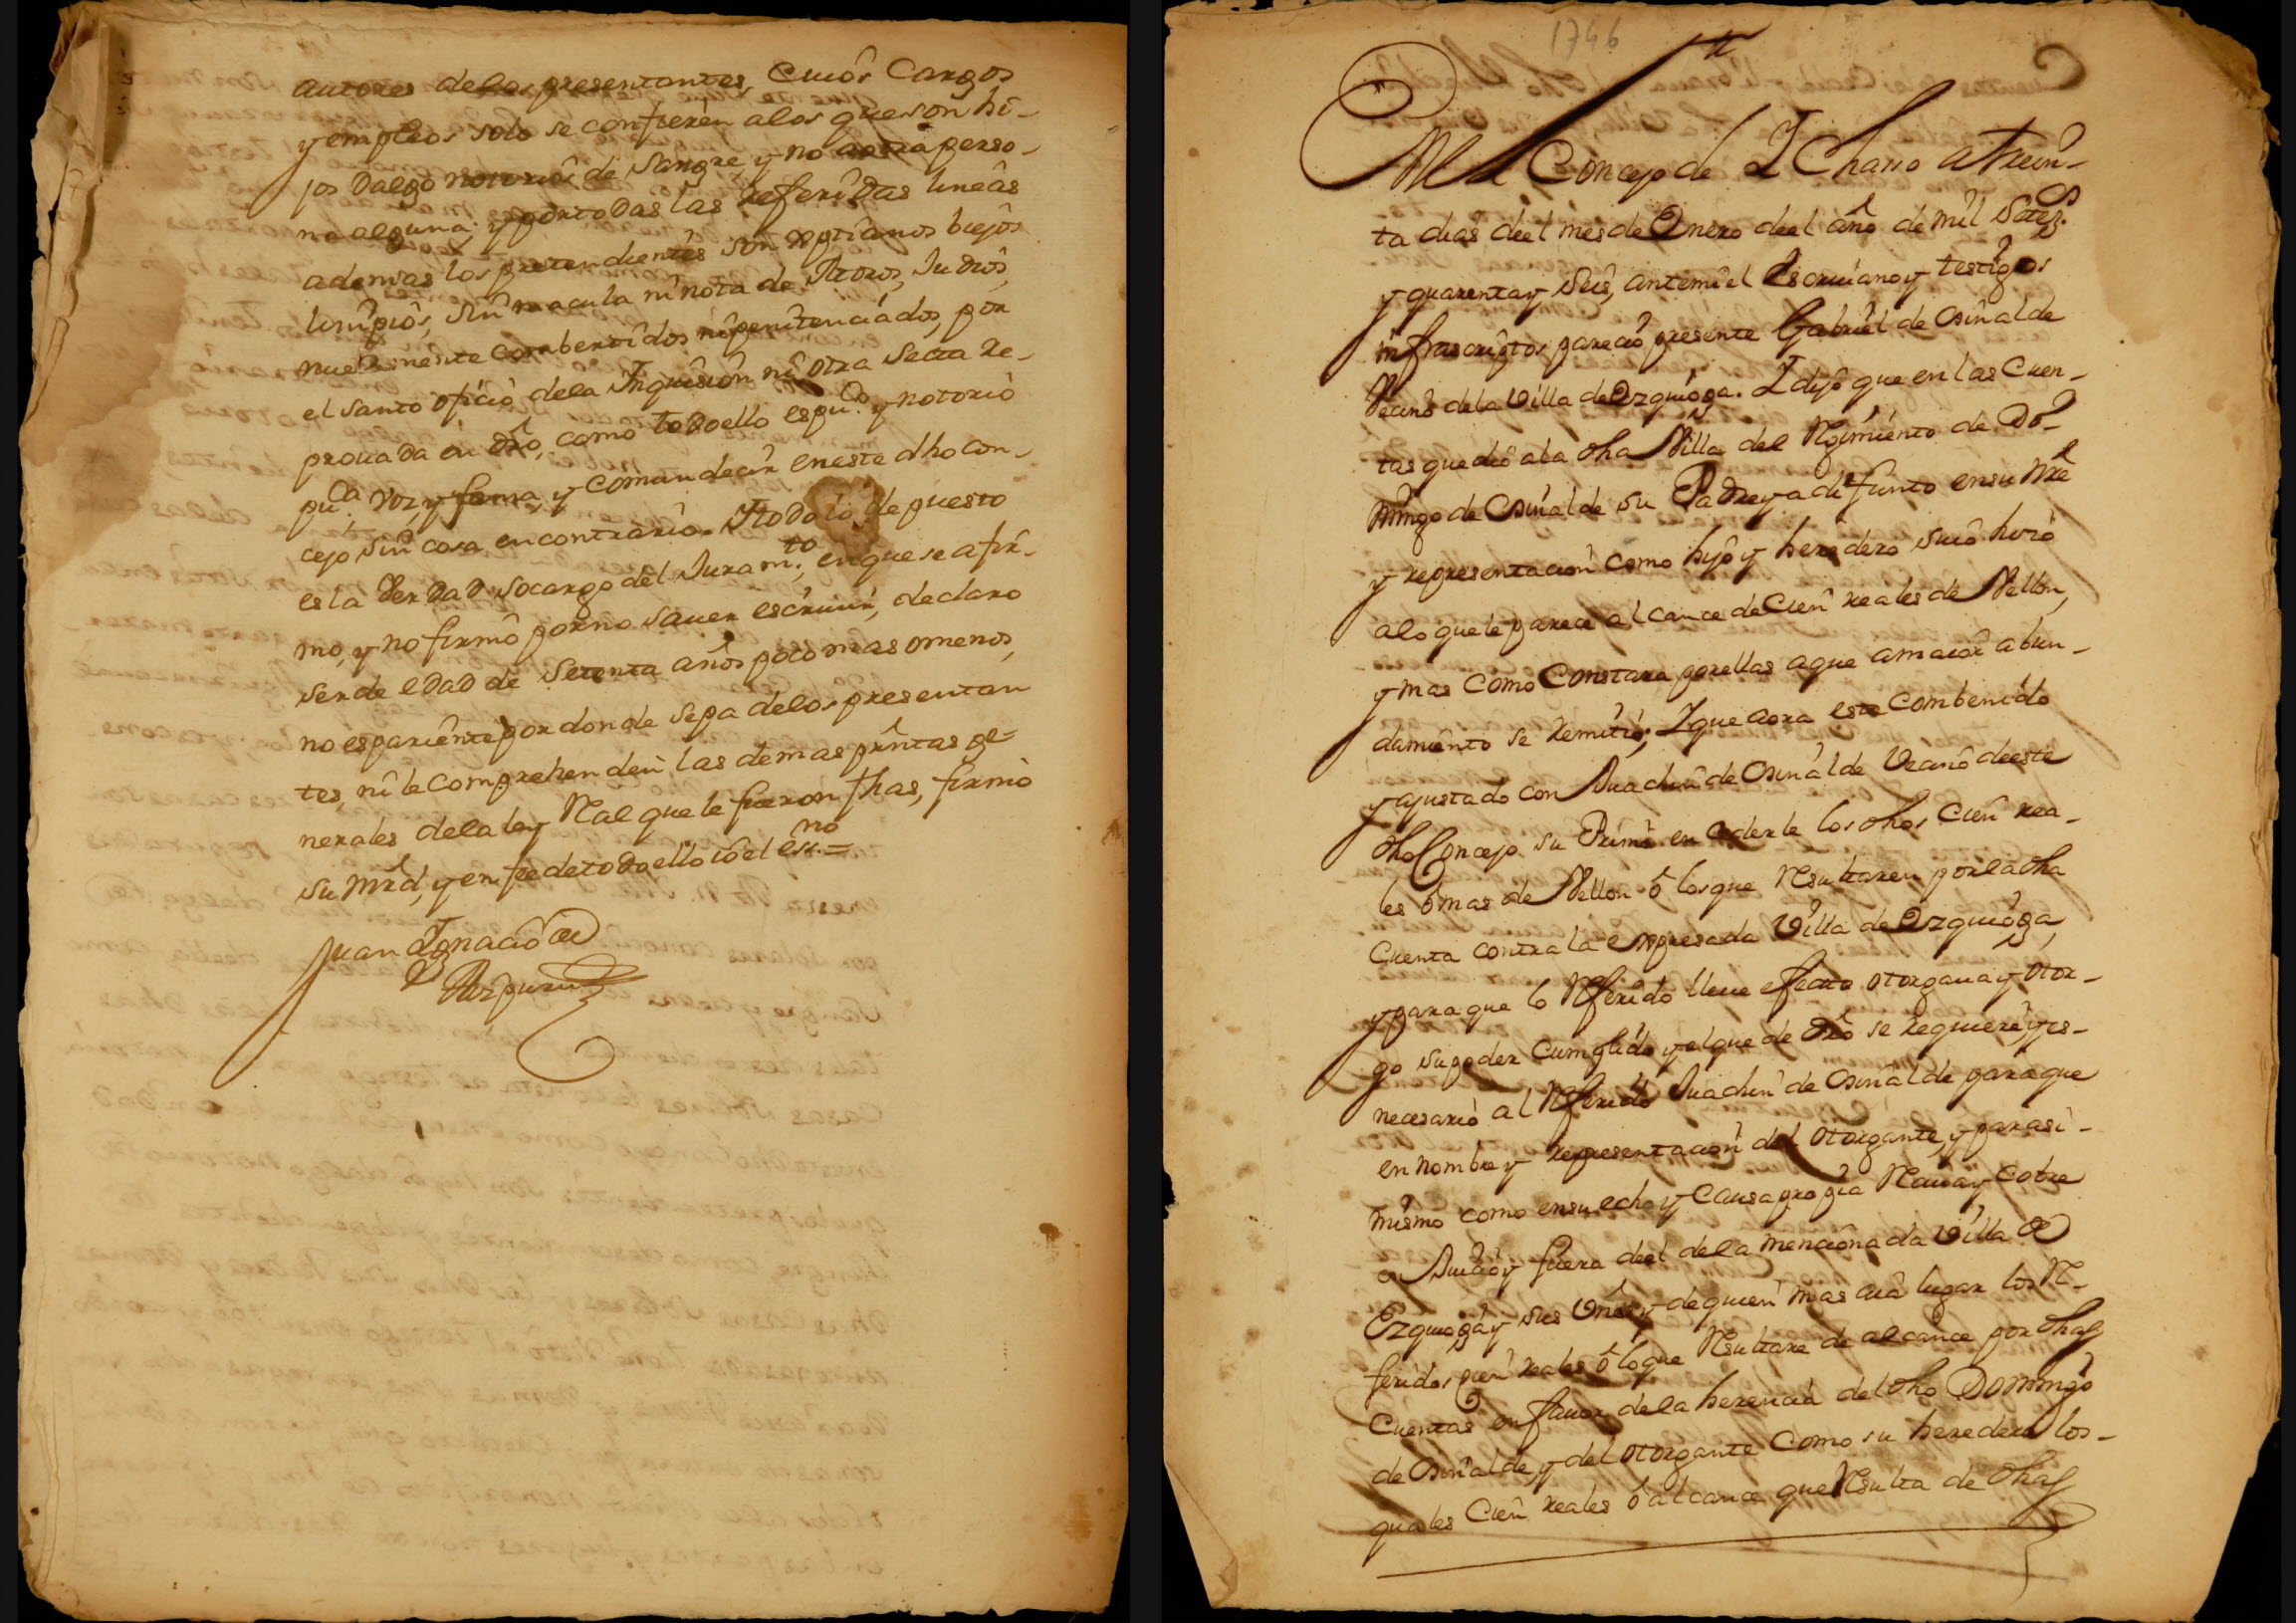 autores delos presentantes, cuiôs Cargos,
y empleos solo se confieren alos que son hi-
jos dalgo notoriôs de Sangre, y no aotra perso-
na alguna; y por todas las referidas lineâs
ademas los pretendientes son xptianos biejôs
limpiôs, sin macula ni nota de Moros, Judiôs,
nuebamente combertidos ni penitenciados, por
el santo oficiô dela Inquisiôn ni otra Secta re-
prouada en dro, como todo ello es pu.co y notoriô
pu.ca voz, y fama, y comun decir eneste dho con-
cejo sin cosa en contrariô. Y todo lo de puesto
es la Verdad socargo del Juram.to, en que se afir-
mo, y no firmô por no sauer escriuir, declaro
ser de edad de setenta años poco mas o menos,
no es pariênte por donde sepa delos presentan
tes, ni le comprehenden las demas prêntas ge=
nerales dela ley Real que le fueron fhas, firmô
su mrd, y en fee de todo ello iô el ess.no=
Juan Ignaciô de
Aizpuru
1746
En el Concejo de Ichaso a trein-
ta dias deel mes de Enero deel año de mil Setez.s
y quarenta y seis, antemi el Escriuano y testigos
infrascriptos pareciô presente Gabriel de Osinalde
Vecino dela Villa de Ezquioga. I dijo que en las Cuen-
tas que diô ala dha Villa del Regimiento de Do-
mingo de Osinalde su Padre ya difunto en su Nre
y representaciôn como hijô y heredero suiô hizô
alo que le parece alcance de Cien reales de Vellon,
y mas como Constara por ellas aque amaiôr abun-
damiênto se remitiô; I que aora esta combenido
y ajustado con Juachin de Osinalde Vecino deeste
dho Concejo su Primo en cederle los dhos Cien rea-
les ô mas de Vellon ô los que Resultaren por la dha
Cuenta contra la expresada Villa de Ezquioga,
y para que lo Referido lleue efecto otorgaua y otor-
go su poder cumplido y el que de dro se requiere y es-
necesario al Referido Juachin de Osinalde para que
en nombre y representaciôn del otorgante, y para si-
mismo como en su echo y Causa propia Reciua y cobre
en Juiciô y fuera deel dela mencionada Villa de
Ezquioga y sus Vnos y de quien mas aia lugar los Re-
feridos cien reales ô lo que Resultare de alcance por dhas
Cuentas en fauor dela herencia del dho Domingo
de Osinalde, y del otorgante Como su heredero los-
quales Cien reales ô alcance que Resulta de dhas